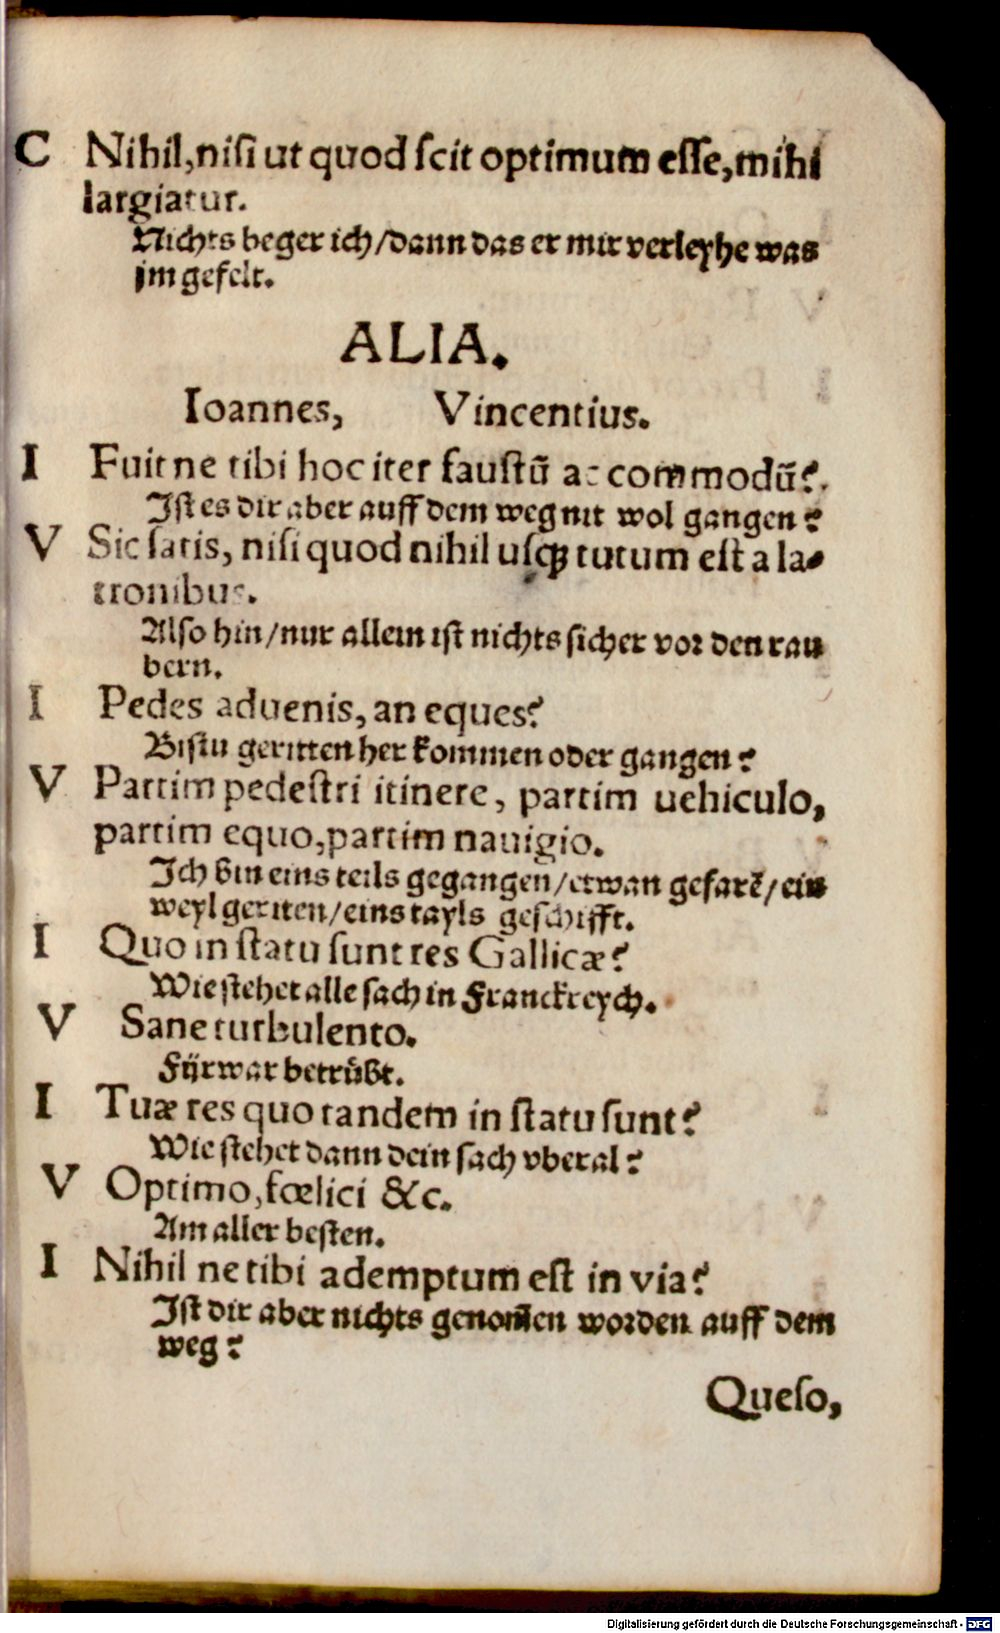 C Nihil, niſi ut quod ſcit optimum eſſe, mihi
largiatur.
Nichts beger ich/dann das er mir verleyhe was
jm gefelt.
ALIA.
Ioannes, Vincentius.
I Fuitne tibi hoc iter fauſtũ ac commodũ?
Iſt es dir aber auff dem weg nit wol gangen?
V Sic ſatis, niſi quod nihil uſqꝫ tutum eſt a la-
tronibus.
Alſo hin/nur allein iſt nichts ſicher vor den rau
bern.
I Pedes aduenis, an eques?
Biſtu geritten her kommen oder gangen?
V Partim pedeſtri itinere, partim uehiculo,
partim equo, partim nauigio.
Ich bin eins teils gegangen/etwan gefarẽ/ein
weyl geriten/eins tayls geſchifft.
I Quo in ſtatu ſunt res Gallicæ?
Wie ſtehet alle ſach in Franckreych.
V Sane turbulento.
Fürwar betrübt.
I Tuæ res quo tandem in ſtatu ſunt?
Wie ſtehet dann dein ſach vberal?
V Optimo, fœlici &c.
Am aller beſten.
I Nihil ne tibi ademptum eſt in via?
Iſt dir aber nichts genom̃en worden auff dem
weg?
Queſo,
Digitalisierung gefördert durch die Deutsche Forschungsgemeinschaft - DFG